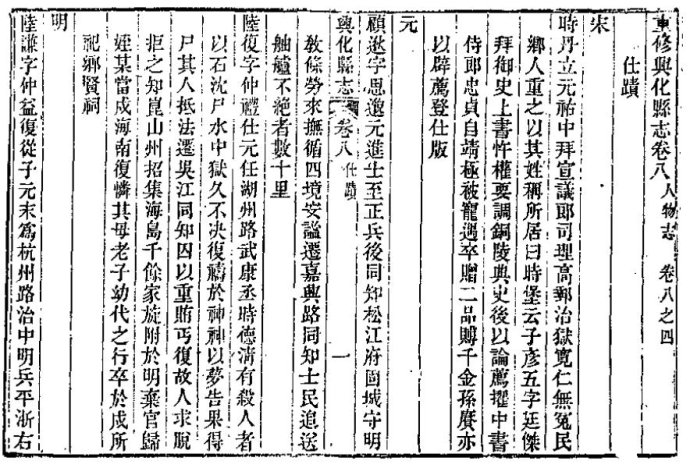 重修興化縣志卷八 人物志 卷八之四
仕蹟
宋
時丹立元祐中拜宣議郎司理高郵治獄寬仁無冤民
鄉人重之以其姓稱所居曰時堡云子彥五字廷傑
拜御史上書忤權要調銅陵典史後以論薦擢中書
侍郎忠貞自靖極被寵遇卒贈二品賻千金孫賡亦
以辟薦登仕版
元
顧逖字思邈元進士至正兵後同知松江府固城守明
興化縣志 卷八 仕蹟 一
教條勞來撫循四境安謐遷嘉興路同知士民追送
舳艫不絕者數十里
陸復字仲禮仕元任湖州路武康丞時德清有殺人者
以石沈尸水中獄久不決復禱於神神以夢告果得
尸其人抵法遷吳江同知囚以重賄丐復故人求脫
拒之知崑山州招集海島千餘家旋附於明棄官歸
姪某當戍海南復憐其母老子幼代之行卒於戍所
祀鄉賢祠
明
陸謙字仲益復從子元末為杭州路治中明兵平浙右